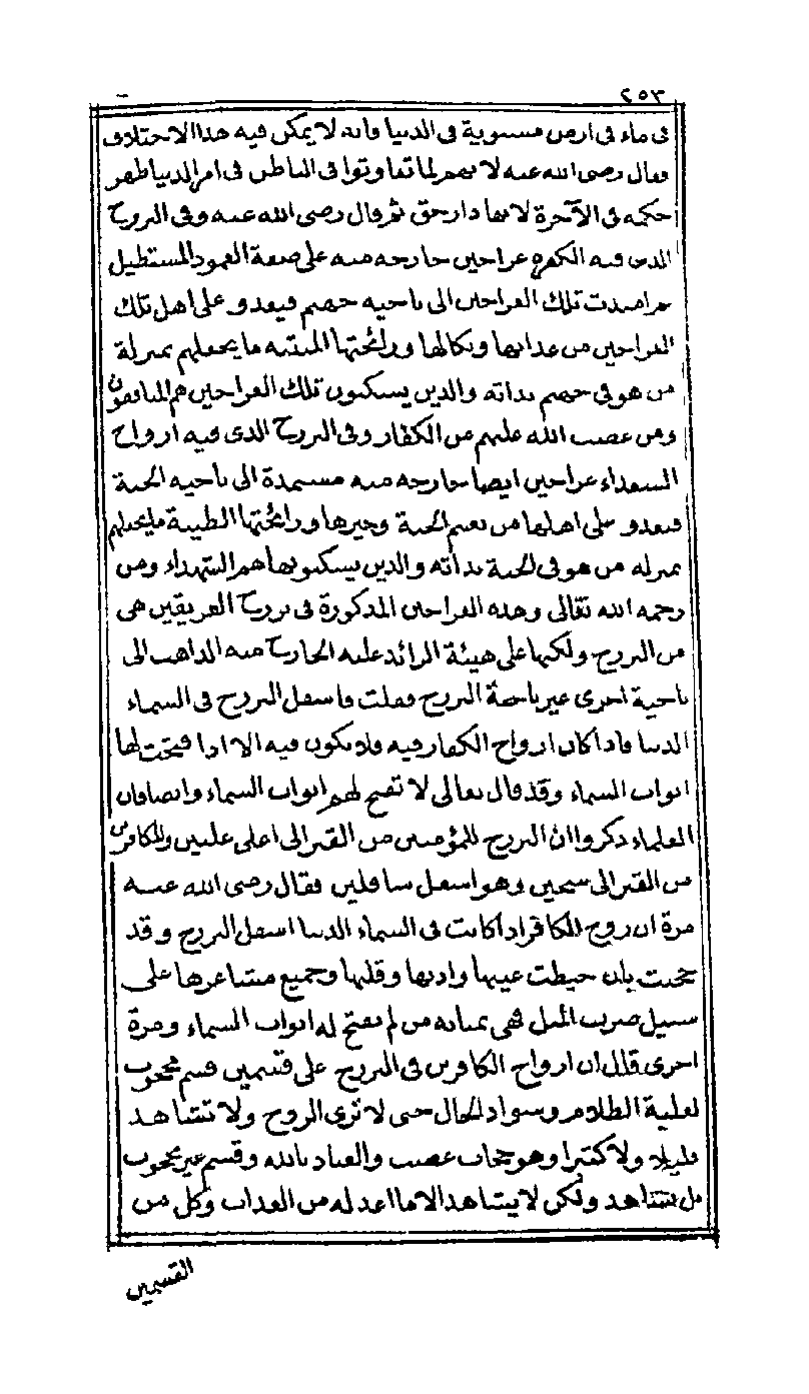 ٢٥٣
فى ماء فى ارض مستوية فى الدنيا فانه لا يمكن فيه هذا الاختلاف
فقال رضى الله عنه لانهم لما تفاوتوا فى الباطن فى امر الدنيا ظهر
حكمه فى الآخرة لانها دار حق ثم قال رضى الله عنه وفى البرزخ
الذى فيه الكفرة عراجين خارجه منه على صفة العمود المستطيل
ثم امتدت تلك العراجين الى ناحيه جهنم فيغدو على اهل تلك
العراجين من عذابها ونكالها ورائحتها المنتنه ما يجعلهم بمنزلة
من هو فى جهنم بذاته والذين يسكنون تلك العراجين هم المنافقون
ومن غضب الله عليهم من الكفار وفى البرزخ الذى فيه ارواح
السعداء عراجين ايضا خارجه منه مستمدة الى ناحيه الجنة
فيغدو على اهلها من نعيم الجنة وخيرها ورائحتها الطيبة ما يجعلهم
بمنزله من هو فى الجنة بذاته والذين يسكنونها هم الشهداء ومن
رحمه الله تعالى وهذه العراجين المذكورة فى برزخ الفريقين هى
من البرزخ ولكنها على هيئة الزائد عليه الخارج منه الذاهب الى
ناحية اخرى غير ناحية البرزخ فقلت فاسفل البرزخ فى السماء
الدنيا فاذا كان ارواح الكفار فيه فلا تكون فيه الا اذا فتحت لها
ابواب السماء وقد قال تعالى لا تفتح لهم ابواب السماء وايضا فان
العلماء ذكروا ان البرزخ للمؤمنين من القبر الى اعلى عليين وللكافرين
من القبر الى سجين وهو اسفل سافلين فقال رضى الله عنه
مرة ان روح الكافر اذا كانت فى السماء الدنيا اسفل البرزخ وقد
حجبت بان خيطت عينها واذنها وقلبها وجميع مشاعرها على
سبيل ضرب المثل فهى بمثابه من لم تفتح له ابواب السماء ومرة
اخرى قال ان ارواح الكافرين فى البرزخ على قسمين قسم محجوب
لغلبة الظلام وسواد الحال حتى لا ترى الروح ولا تشاهد
قليلا ولا كثيرا وهو حجاب غضب والعياذ بالله وقسم غير محجوب
بل تشاهد ولكن لا يشاهد الا ما اعد له من العذاب وكل من
القسمين